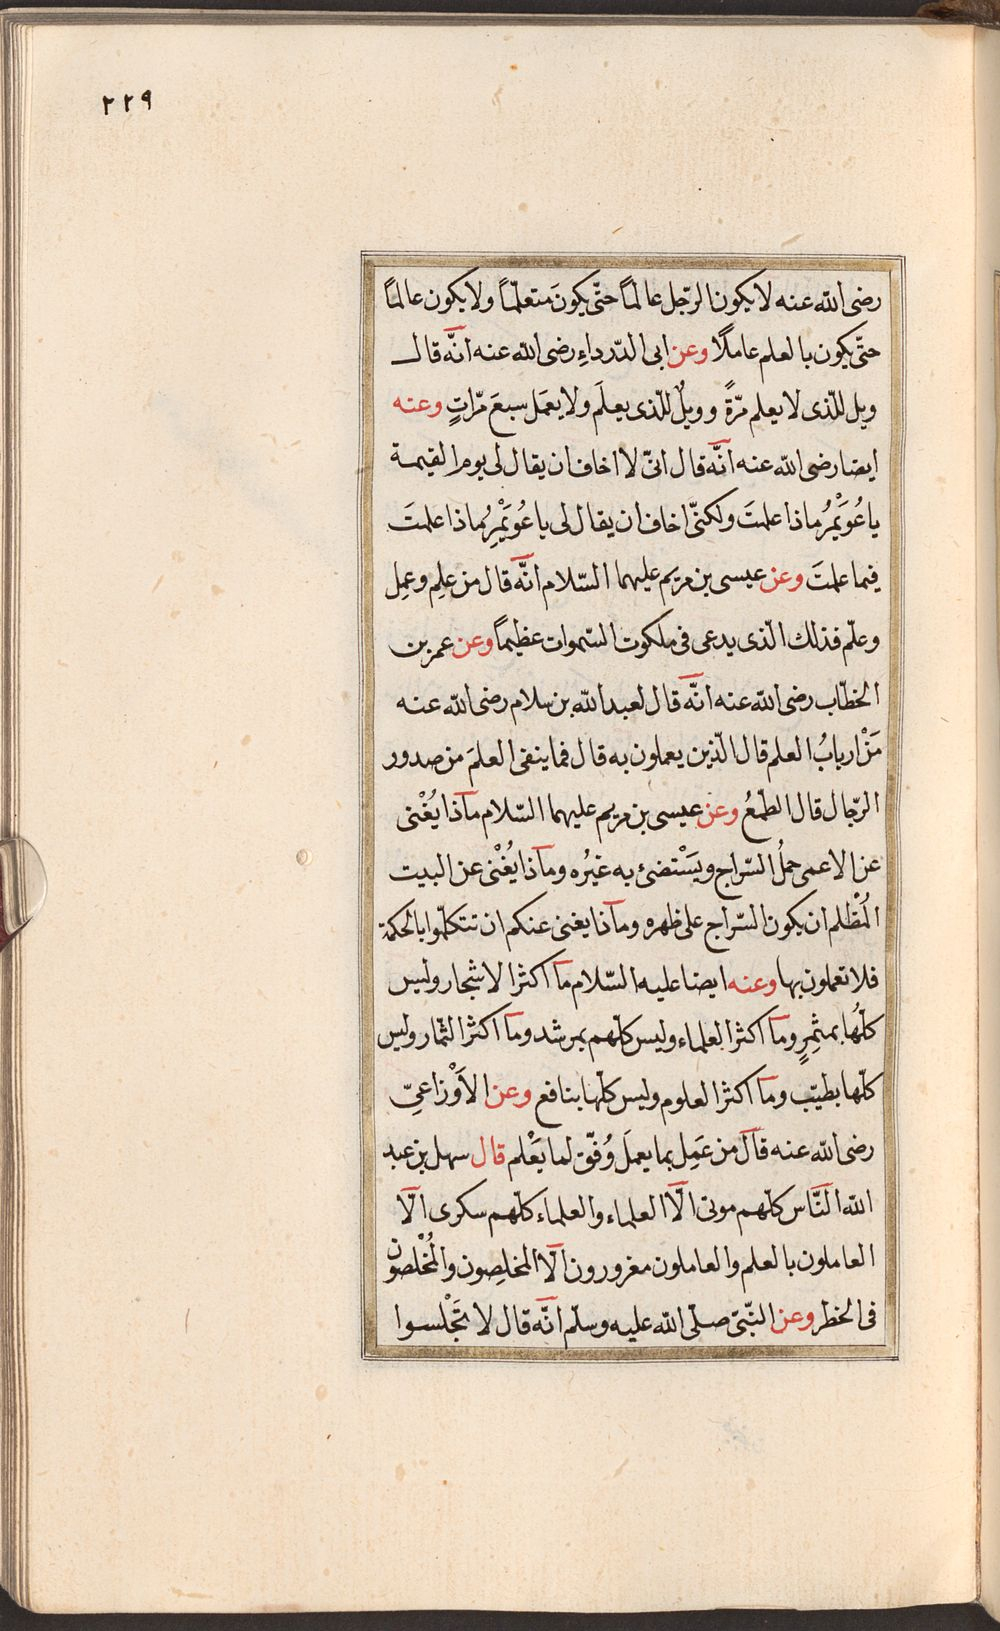 ٢٢٩
رضى الله عنه لا يكون الرّجل عالماً حتّى يكونَ متعلّماً ولا يكون عالماً
حتّى يكون بالعلم عاملًا وعن ابى الدّرداءِ رضى الله عنه انّه قال
ويل للّذى لا يعلم مرّةً وويلٌ للّذى يعلَم ولا يعمَل سبعَ مرّاتٍ وعنه
ايضا رضى الله عنه انّه قال انّى لا اخاف ان يقال لى يوم القيمة
يا عُوَيْمِرُ ماذا علمتَ ولكنّى اخاف ان يقال لى يا عُوَيْمِرُ ماذا علمتَ
فيما علمتَ وعن عيسى بن مريم عليهما السّلام انّه قال من علِم وعمِل
وعلّم فذلك الّذى يدعى فى ملكوت السّموات عظيماً وعن عمر بن
الخطّاب رضى الله عنه انّه قال لعبد الله بن سلام رضى الله عنه
مَنْ اربابُ العلم قال الّذين يعملون به قال فما ينفى العلمَ من صدور
الرّجال قال الطّمعُ وعن عيسى بن مريم عليهما السّلام ماذا يُغْنى
عن الاعمى حملُ السّراج ويَسْتضئ به غيرُه وماذا يُغْنى عن البيت
المُظْلم ان يكون السّراج على ظهره وماذا يغنى عنكم ان تتكلّموا بالحكمة
فلا تعملون بها وعنه ايضا عليه السّلام ما اكثر الاشجار وليس
كلّها بمثمِرٍ وما اكثر العلماء وليس كلّهم بمرشد وما اكثر الثمار وليس
كلّها بطيّب وما اكثر العلوم وليس كلّها بنافع وعن الأوْزاعىّ
رضى الله عنه قال من عَمِل بما يعملَ وُفّق لما يَعْلم قال سهل بن عبد
الله النّاس كلّهم موتى الّا العلماء والعلماء كلّهم سكرى الّا
العاملون بالعلم والعاملون مغرورون الّا المخلِصون والمُخْلصون
فى الخطر وعن النّبىّ صلّى الله عليه وسلّم انّه قال لا تَجْلسوا